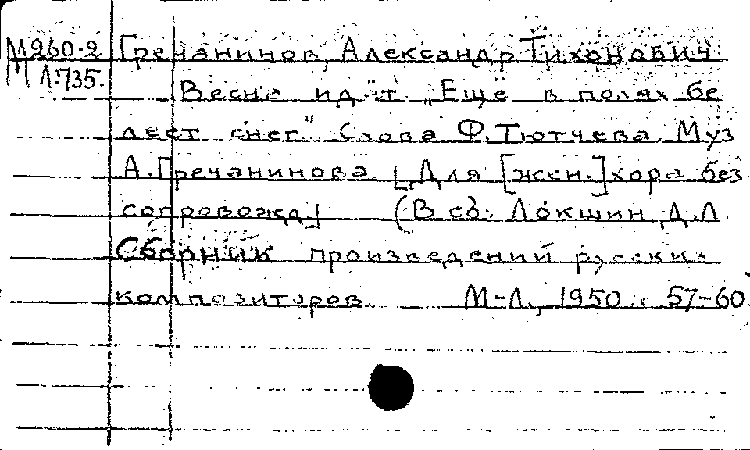 М960-2 Гречанинов, Александр Тихонович
М Л:735.
Весна идёт. "Еще в полях бе
леет снег." Слова Ф. Тютчева. Муз
А. Гречанинова. [Для [жен.] хора без
сопровожд.] (В сб: Локшин, Д.Л
Сборник произведений русских
композиторов. М-Л., 1950. с. 57-60